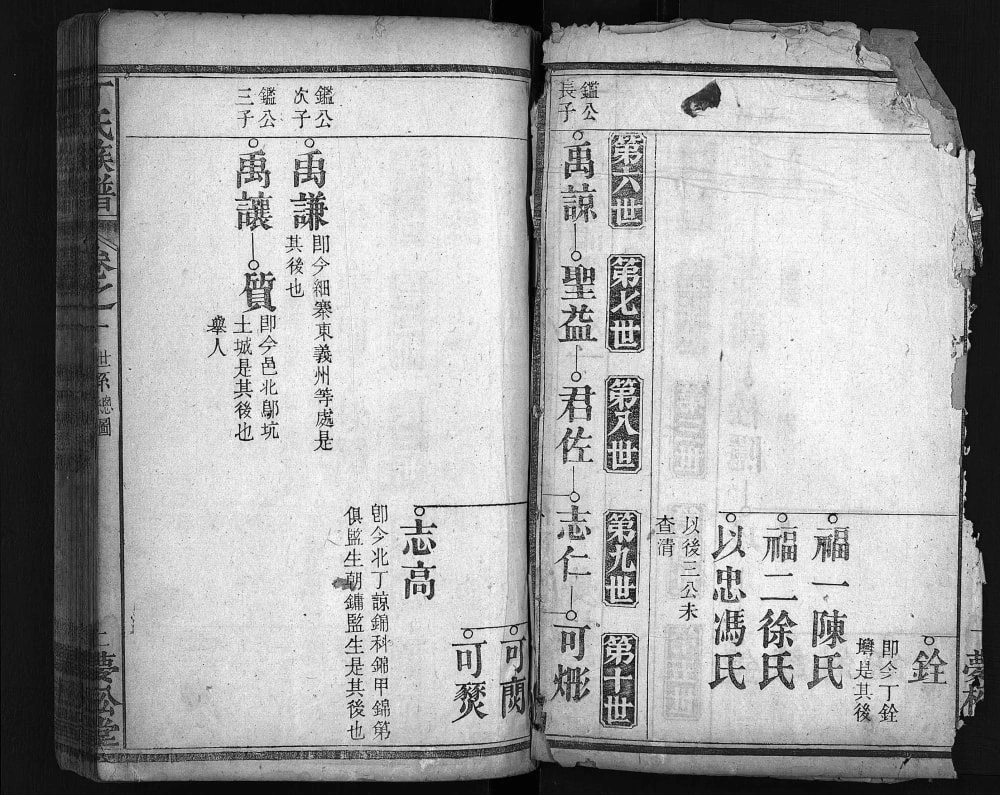 銓
即今丁銓
灣是其後
福一陳氏
福二徐氏
以忠馮氏
以後三公未
查清
第六世
第七世
第八世
第九世
第十世
鑑公
長子
禹諒
聖益
君佐
志仁
可㷟
可閿
可燹
志高
卽今北丁諒錦科錦甲錦第
俱監生朝鏞監生是其後也
鑑公
次子
禹謙
卽今細寨東義州等處是
其後也
鑑公
三子
禹讓
質
卽今邑北鄔坑
土城是其後也
舉人
丁氏族譜
卷之一
世系總圖
二
夢松堂